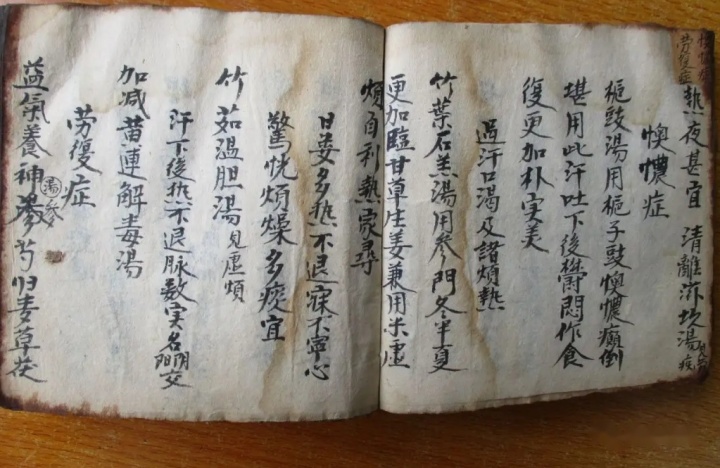 劳復症
熱夜甚宜 清離滋坎湯
懊憹症
梔豉湯用梔子豉懊憹癲倒
堪用此汗吐下後欝悶作食
復更加朴实美
過汗口渴及諸煩熱
竹葉石羔湯用參門冬半夏
更加臨甘草生姜兼用米虛
煩自利熱家尋
日晏多热不退寐不寧心
驚恍煩燥多痰宜
竹茹温胆湯見虛煩
汗下後热不退脉数实名陽明交
加减黄連解毒湯
劳復症
益氣養神湯參芍归麦草茯